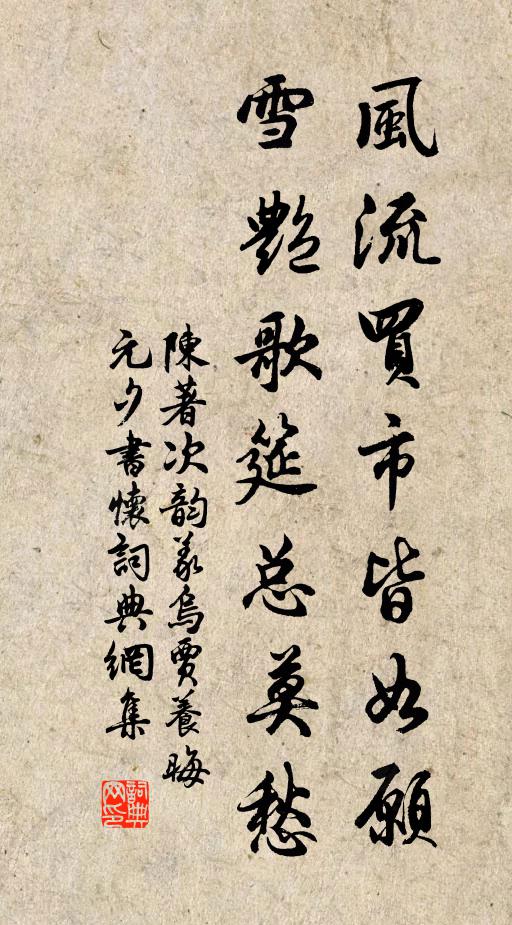 風流買市皆如願
雪艷歌筵总莫愁
陳著次韵义烏賈養晦
元夕書懷詞典網集
詞典网印